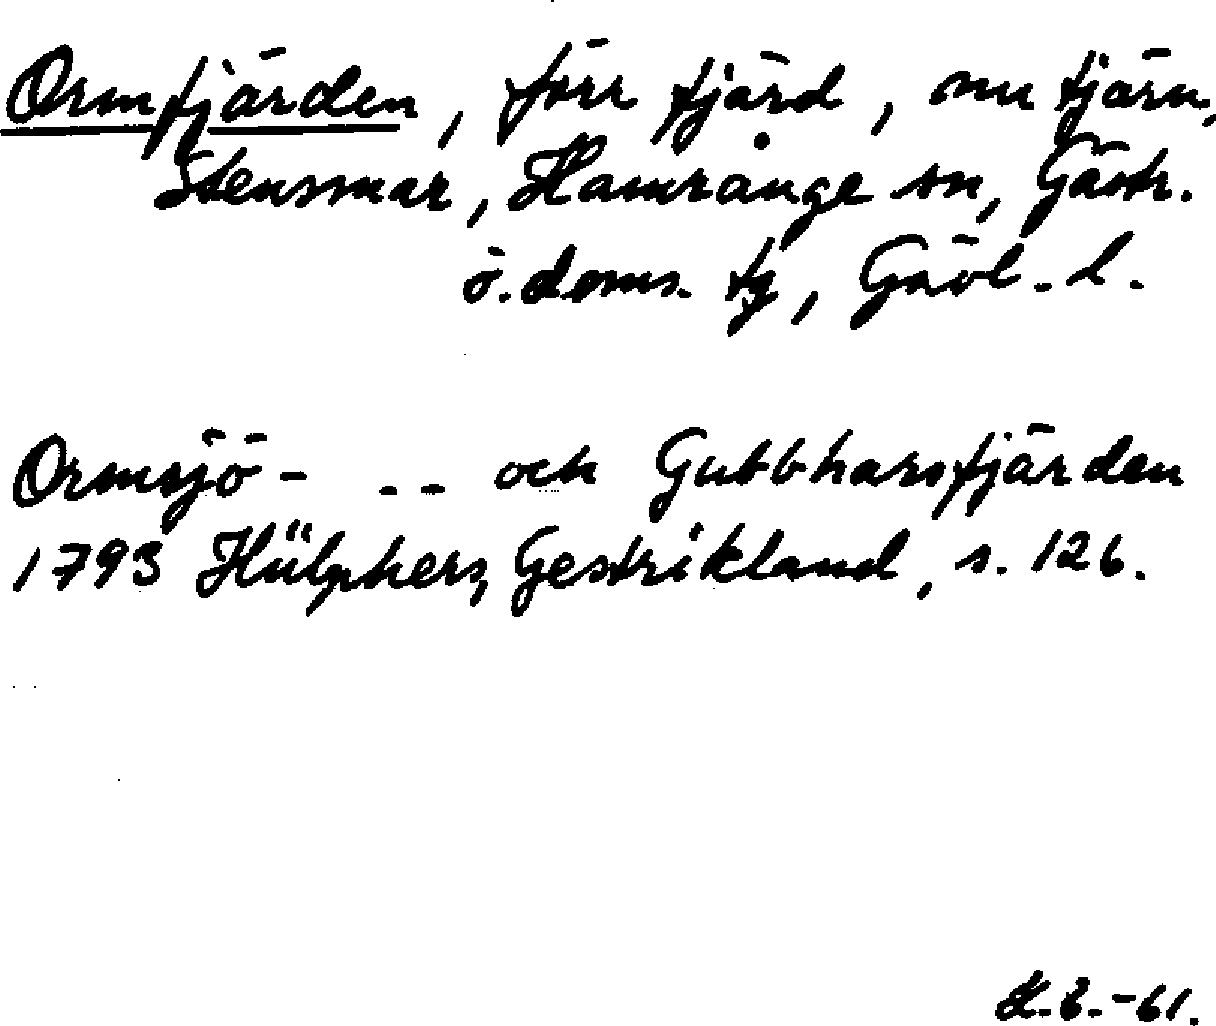 Ormfjärden, förr fjärd, nu tjärn,
Stensmar, Hamrånge sn, Gästr.
ö. doms. tg, Gävl. l.
Ormsjö- -- och Gubbharsfjärden
1793 Hülphers, Gestrikland, s. 126.
H.B.-61.